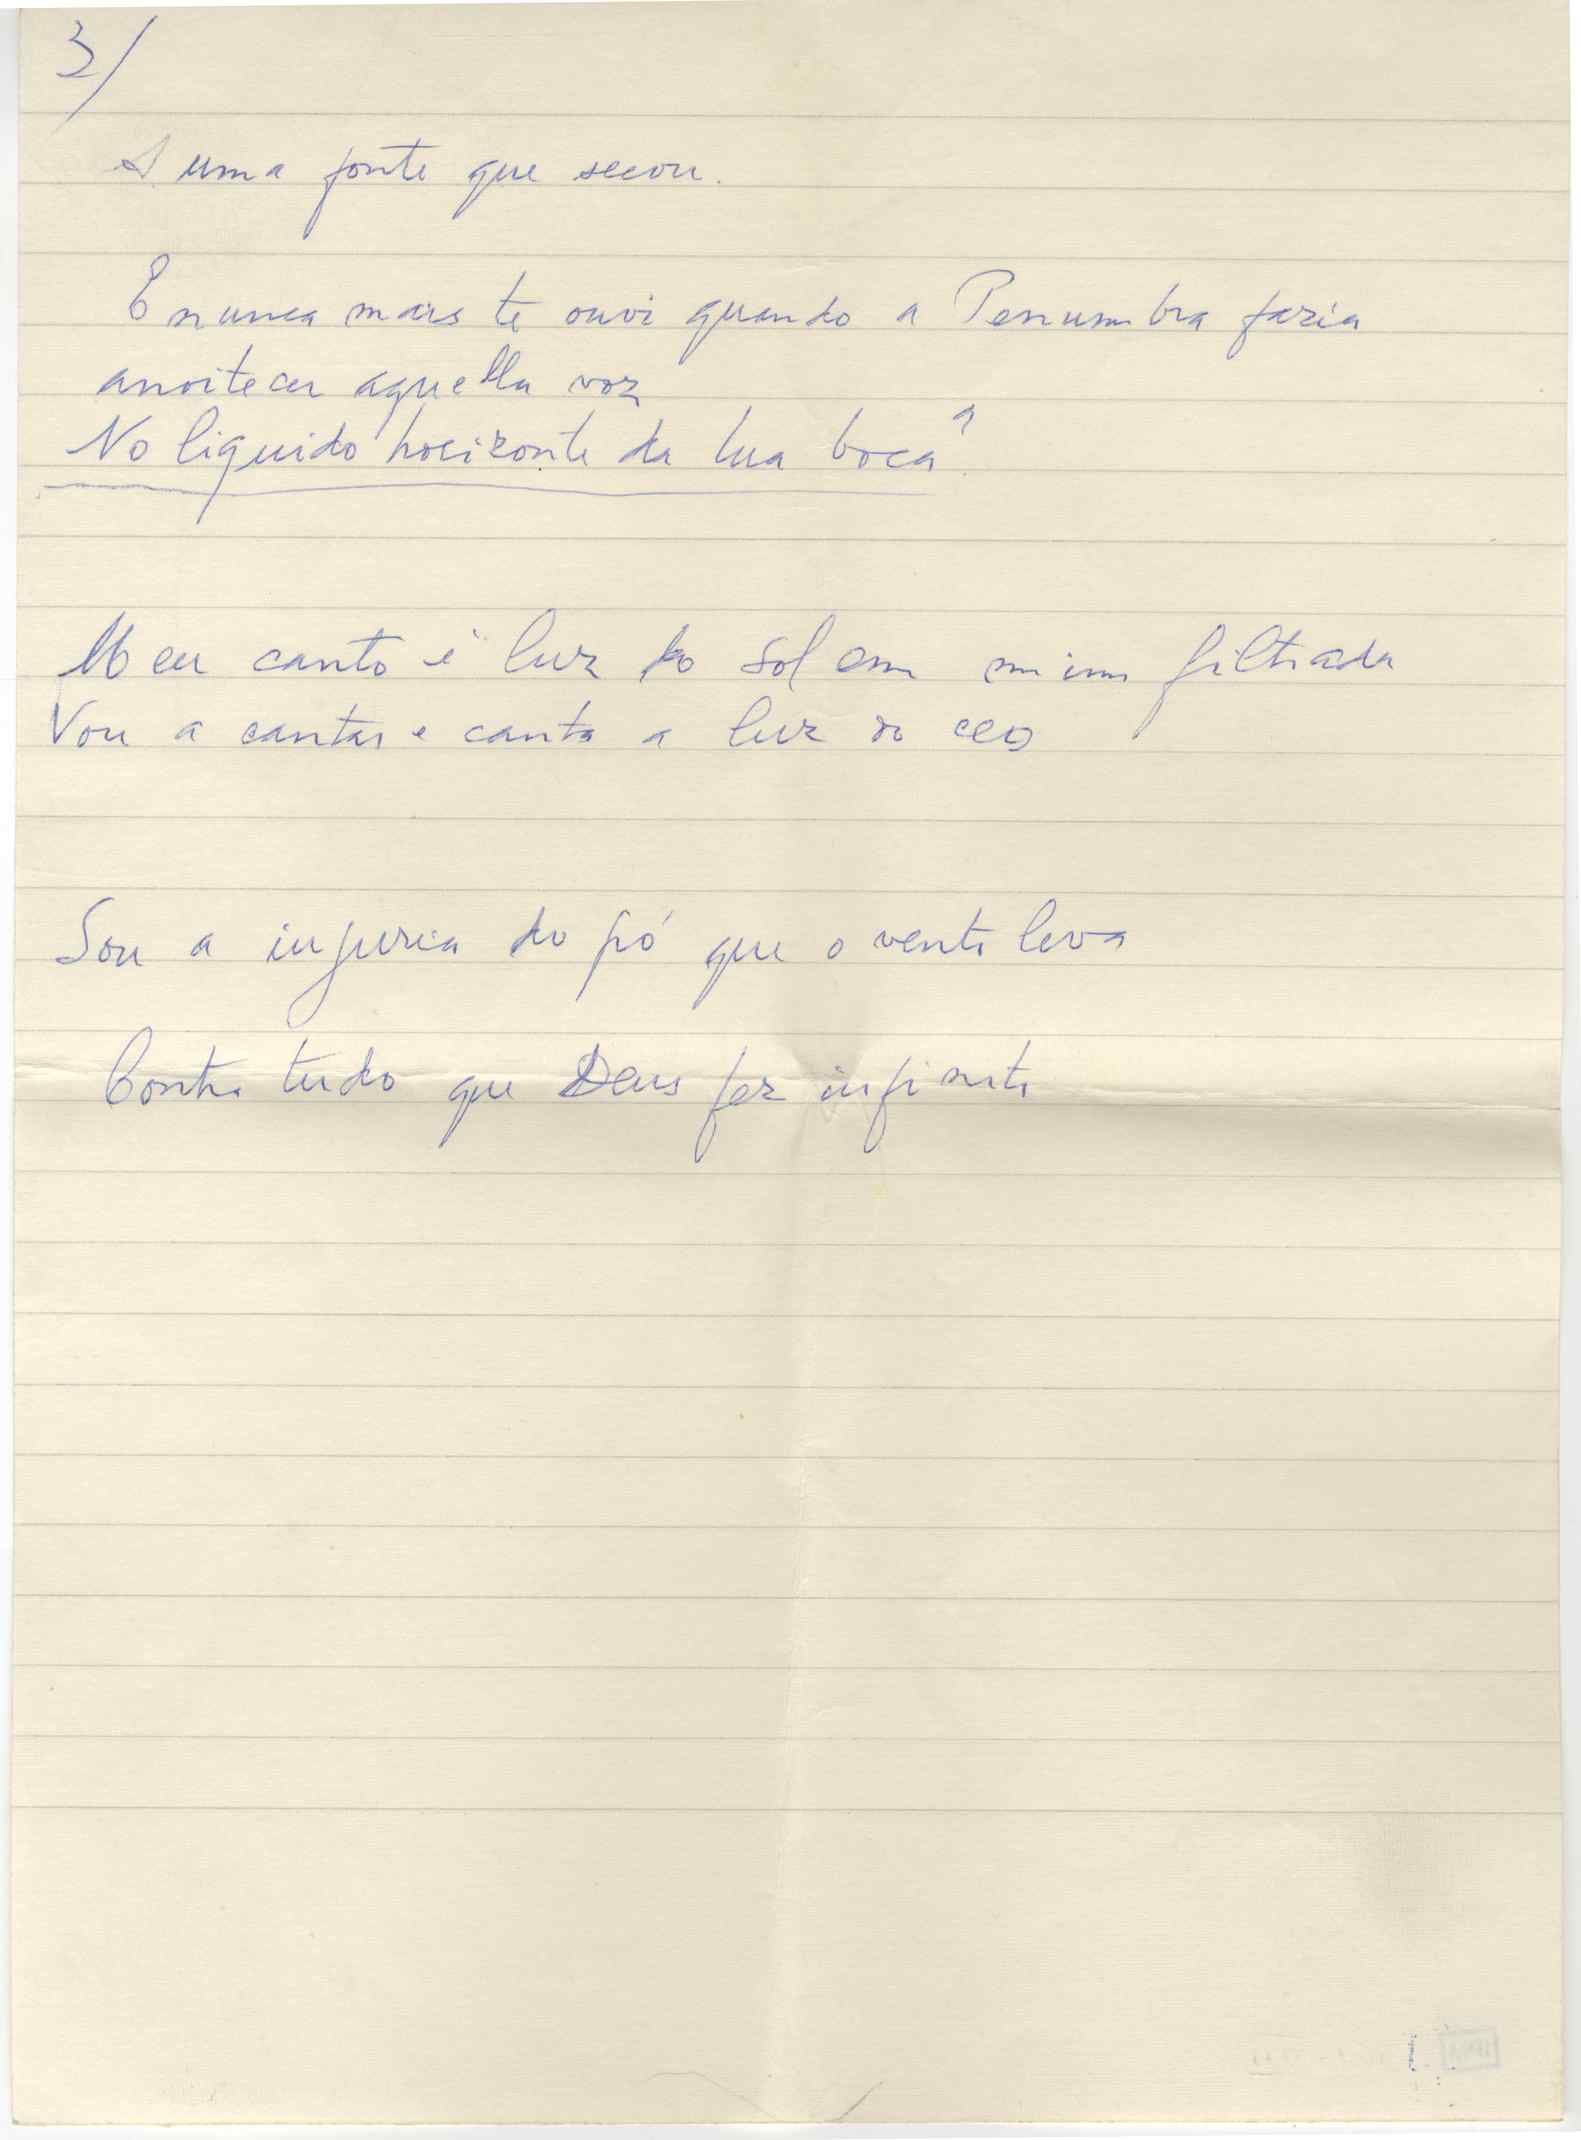 3/
A uma fonte que secou.
E nunca mais te ouvi quando a Penumbra fazia
anoitecer aquella voz
No liquido horizonte da tua boca"
Meu canto é luz do sol em mim filtrada
Vou a cantar e canta a luz do ceo
Sou a injuria do pó que o vento leva
Contra tudo que Deus fez infinito